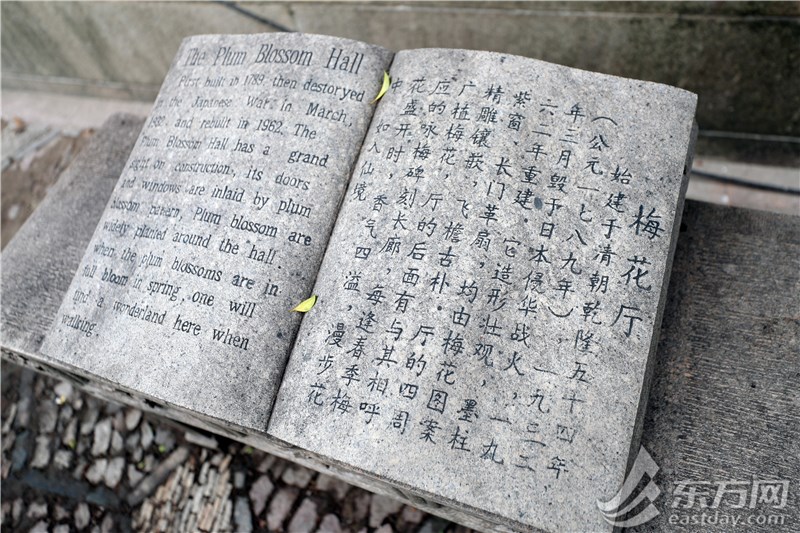 The Plum Blossom Hall
First built in 1789, then destoryed
in the Japanese War in March,
1932, and rebuilt in 1962. The
Plum Blossom Hall has a grand
sight on construction, its doors
and windows are inlaid by plum
blossom pattern. Plum blossom are
widely planted around the hall.
when the plum blossoms are in
full bloom in spring, one will
find a wonderland here when
walking.
梅花厅
始建于清朝乾隆五十四年，
（公元一七八九年），一九三二
年三月毁于日本侵华战火，一九
六二年重建。它造形壮观，墨柱
紫窗、长门革扇，均由梅花图案
精雕镶嵌，飞檐古朴。厅的四周
广植梅花，厅的后面有与其相呼
应的咏梅碑刻长廊，每逢春季梅
花盛开时，香气四溢，漫步花
中，如入仙境。
东方网
eastday.com